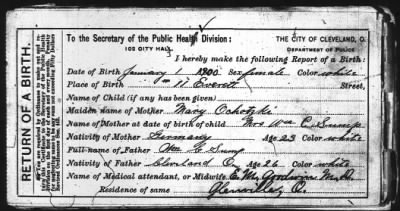 To the Secretary of the Public Health Division:
THE CITY OF CLEVELAND, O.
102 CITY HALL
DEPARTMENT OF POLICE
I hereby make the following Report of a Birth:
Date of Birth January 1 1900 Sex female Color white
Place of Birth 17 Everett Street,
Name of Child (if any has been given)
Maiden name of Mother Mary
Name of Mother at date of birth of child Mrs Wm C.
Nativity of Mother Germany Age 23 Color white
Full name of Father Wm C.
Nativity of Father Cleveland O Age 26 Color white
Name of Medical attendant, or Midwife E. M. Goodwin M.D.
Residence of same Glenville, O.
RETURN OF A BIRTH.